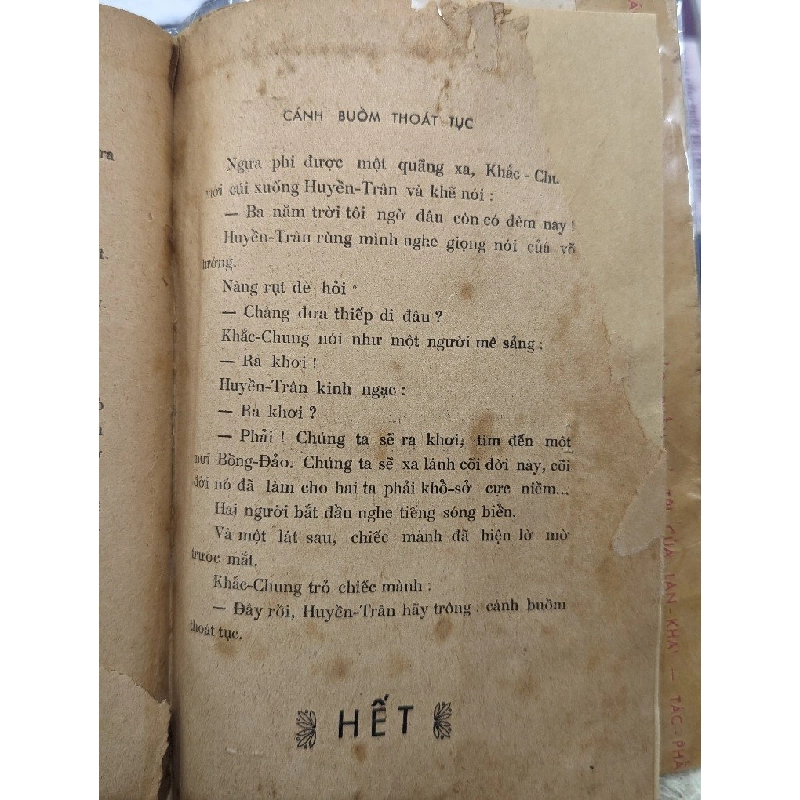 CÁNH BUỒM THOÁT TỤC
Ngựa phi được một quãng xa, Khắc-Chu
cúi xuống Huyền-Trân và khẽ nói :
— Ba năm trời tôi ngờ đâu còn có đêm nay !
Huyền-Trân rùng mình nghe giọng nói của võ
tướng.
Nàng rụt dè hỏi :
— Chàng đưa thiếp di đâu ?
Khắc-Chung nói như một người mê sảng :
— Ra khơi !
Huyền-Trân kinh ngạc :
— Ra khơi ?
— Phải ! Chúng ta sẽ ra khơi, tìm đến một
nơi Bồng-Đảo. Chúng ta sẽ xa lánh cõi đời nay, cõi
đời nó đã làm cho hai ta phải khổ-sở cực niềm...
Hai người bắt đầu nghe tiếng sóng biển.
Và một lát sau, chiếc mành đã hiện lờ mờ
trước mắt.
Khắc-Chung trỏ chiếc mành :
— Đây rồi, Huyền-Trân hãy trông : cánh buồm
thoát tục.
HẾT
ra
CỦA TÂN-KHAI — TÁC-PHẨ